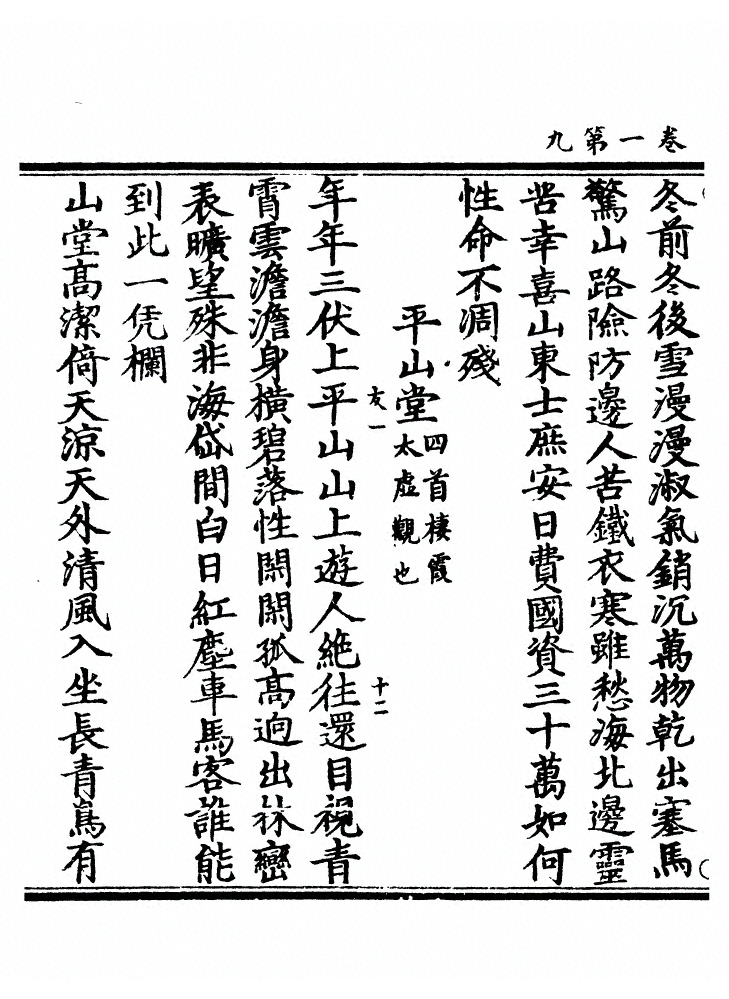 卷一第九
冬前冬後雪漫漫淑氣銷沉萬物乾出塞馬
驚山路險防邊人苦鐵衣寒雖愁海北邊靈
苦幸喜山東士庶安日費國資三十萬如何
性命不凋殘
平山堂四首棲霞
太虛觀也
友一
十二
年年三伏上平山山上遊人絶往還目視青
霄雲澹澹身橫碧落性閑閑孤高逈出林巒
表曠望殊非海岱間白日紅塵車馬客誰能
到此一凭欄
山堂高潔倚天涼天外清風入坐長青鳥有